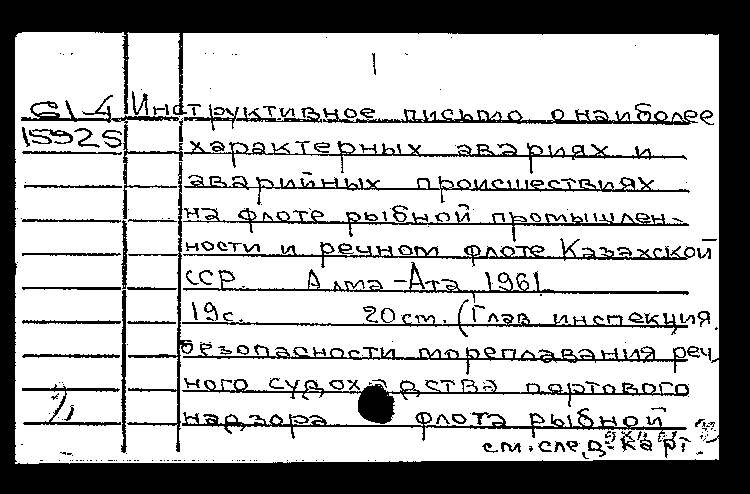 61-4 Инструктивное письмо о наиболее
15925 характерных авариях и
аварийных происшествиях
на флоте рыбной промышлен-
ности и речном флоте Казахской
ССР. Алма-Ата, 1961.
19с. 20ст. (Глав инспекция
безопасности мореплавания реч
ного судоходства портового
надзора флота рыбной
см. след. карт